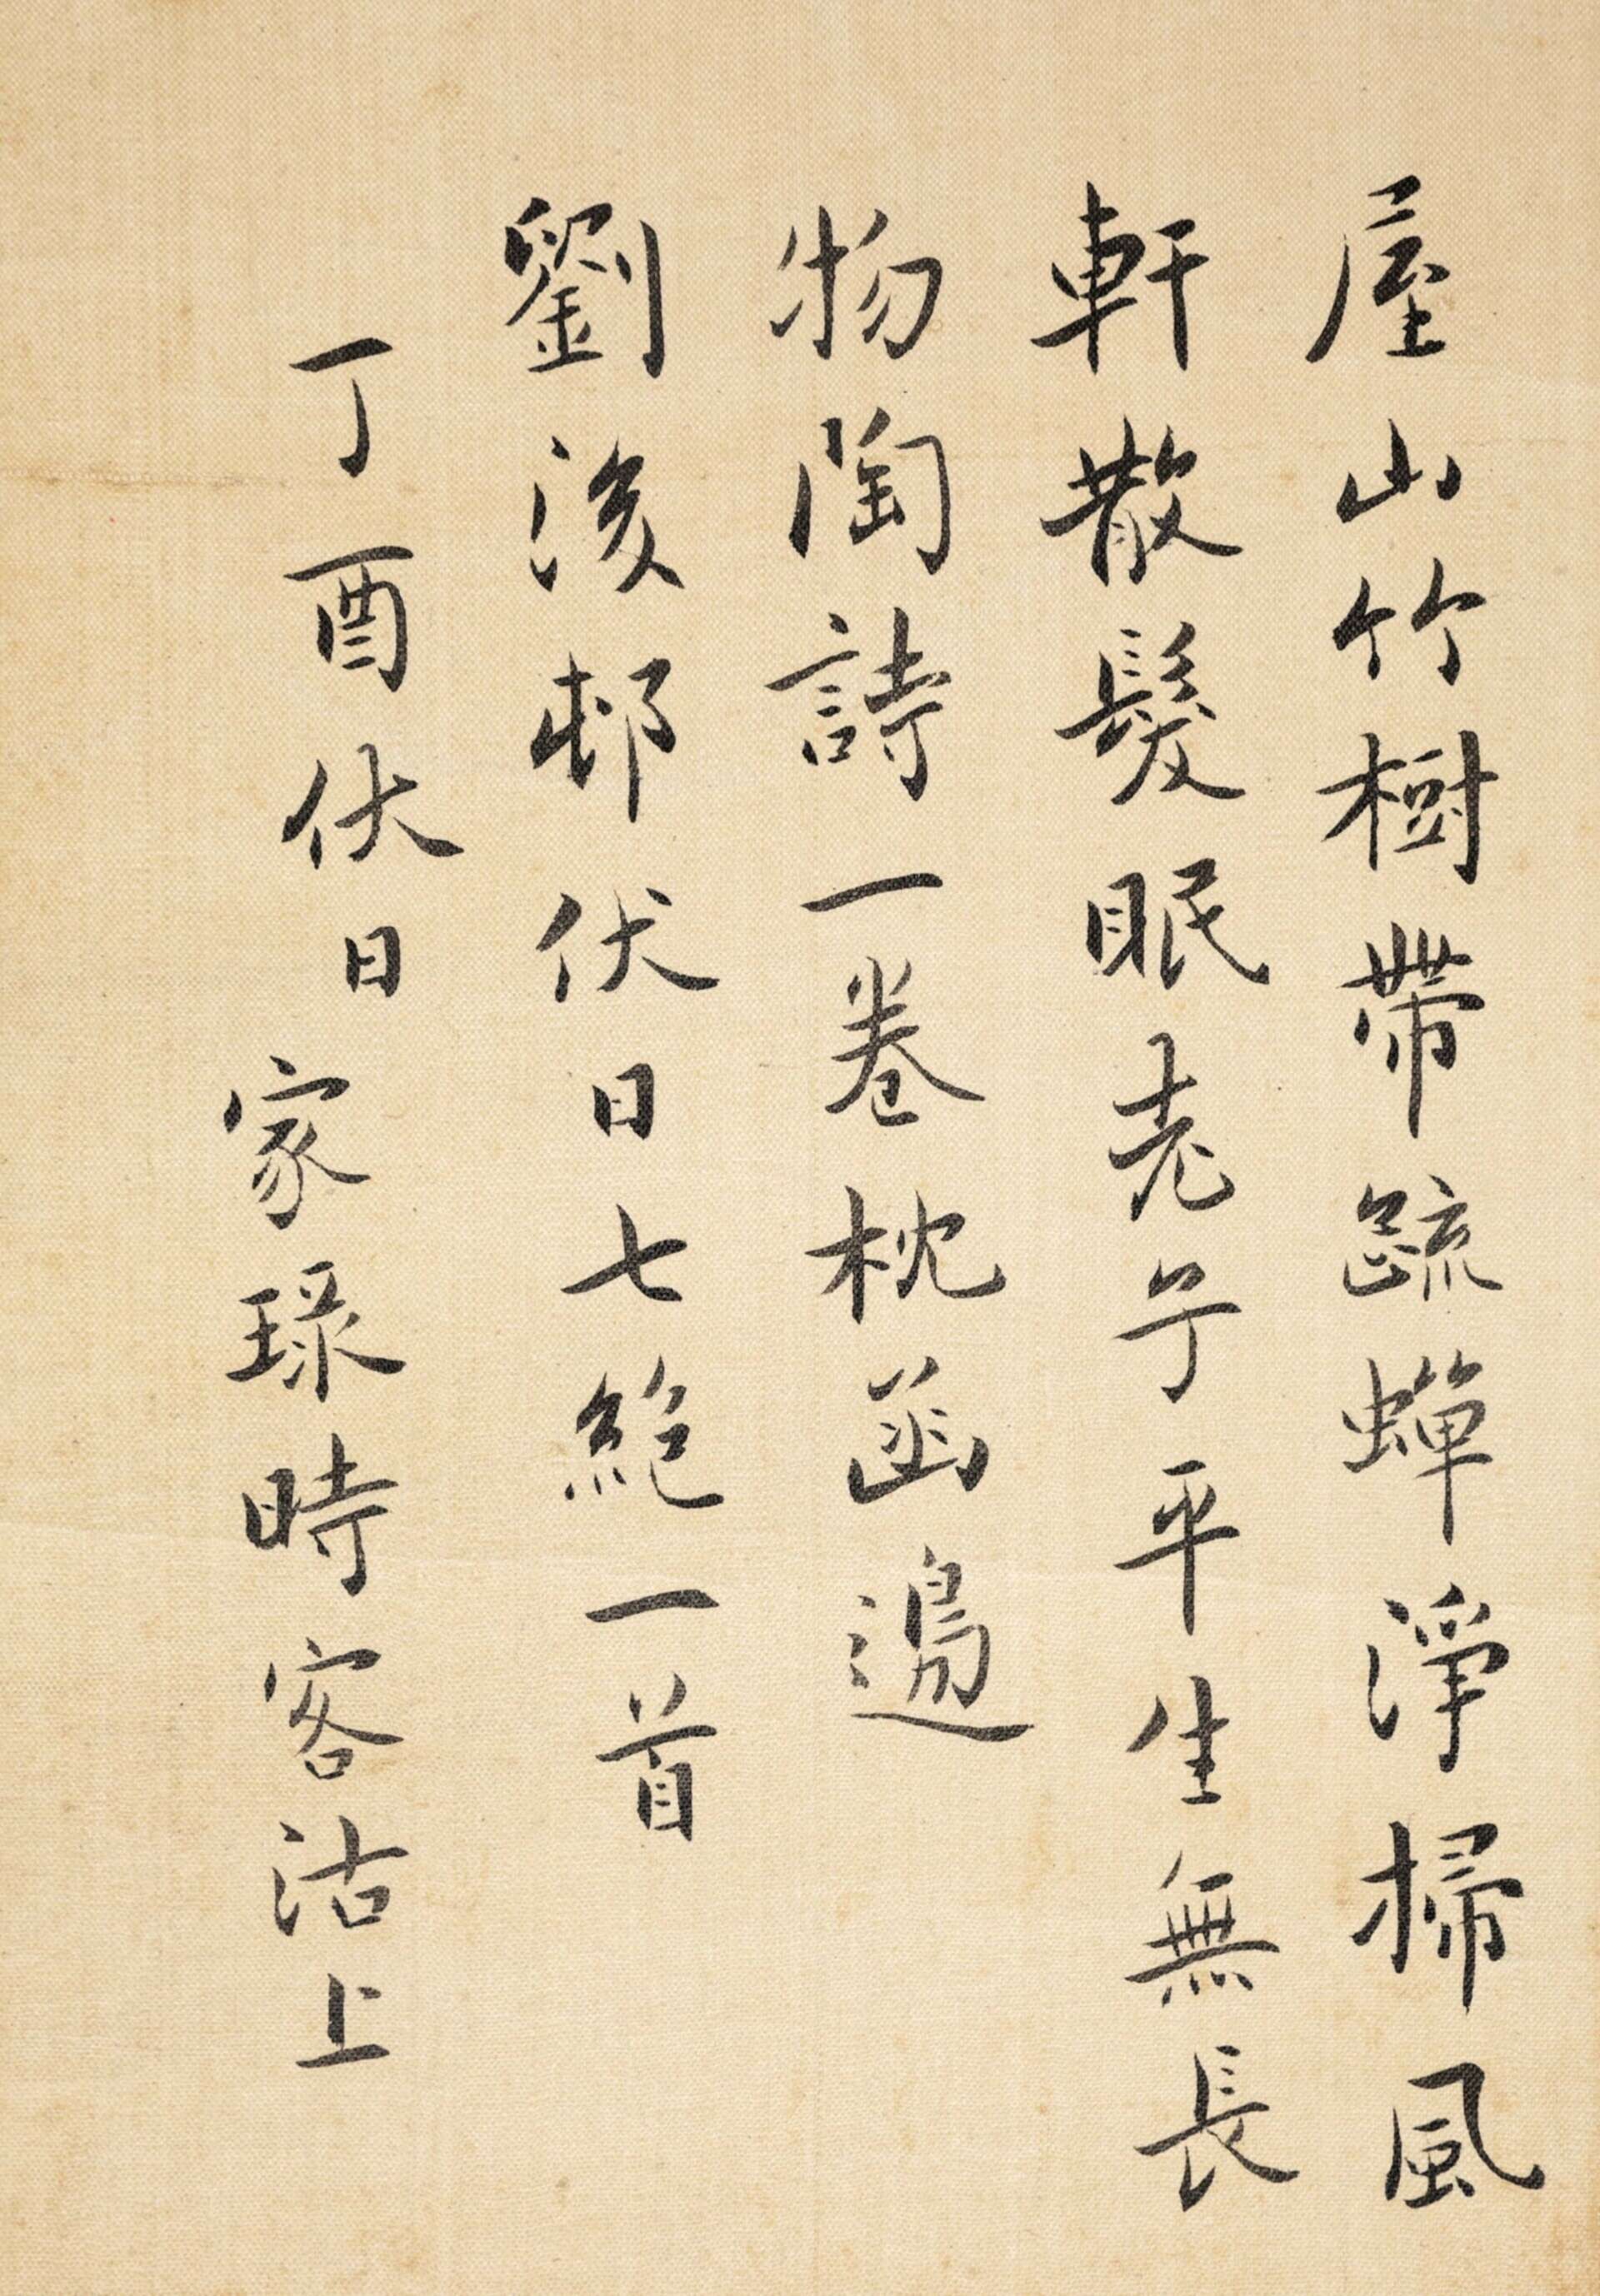 屋山竹樹帶疏蟬淨掃風
軒散髮眠老子平生無長
物陶詩一卷枕函邊
劉後邨伏日七絕一首
丁酉伏日 家琭時客沽上